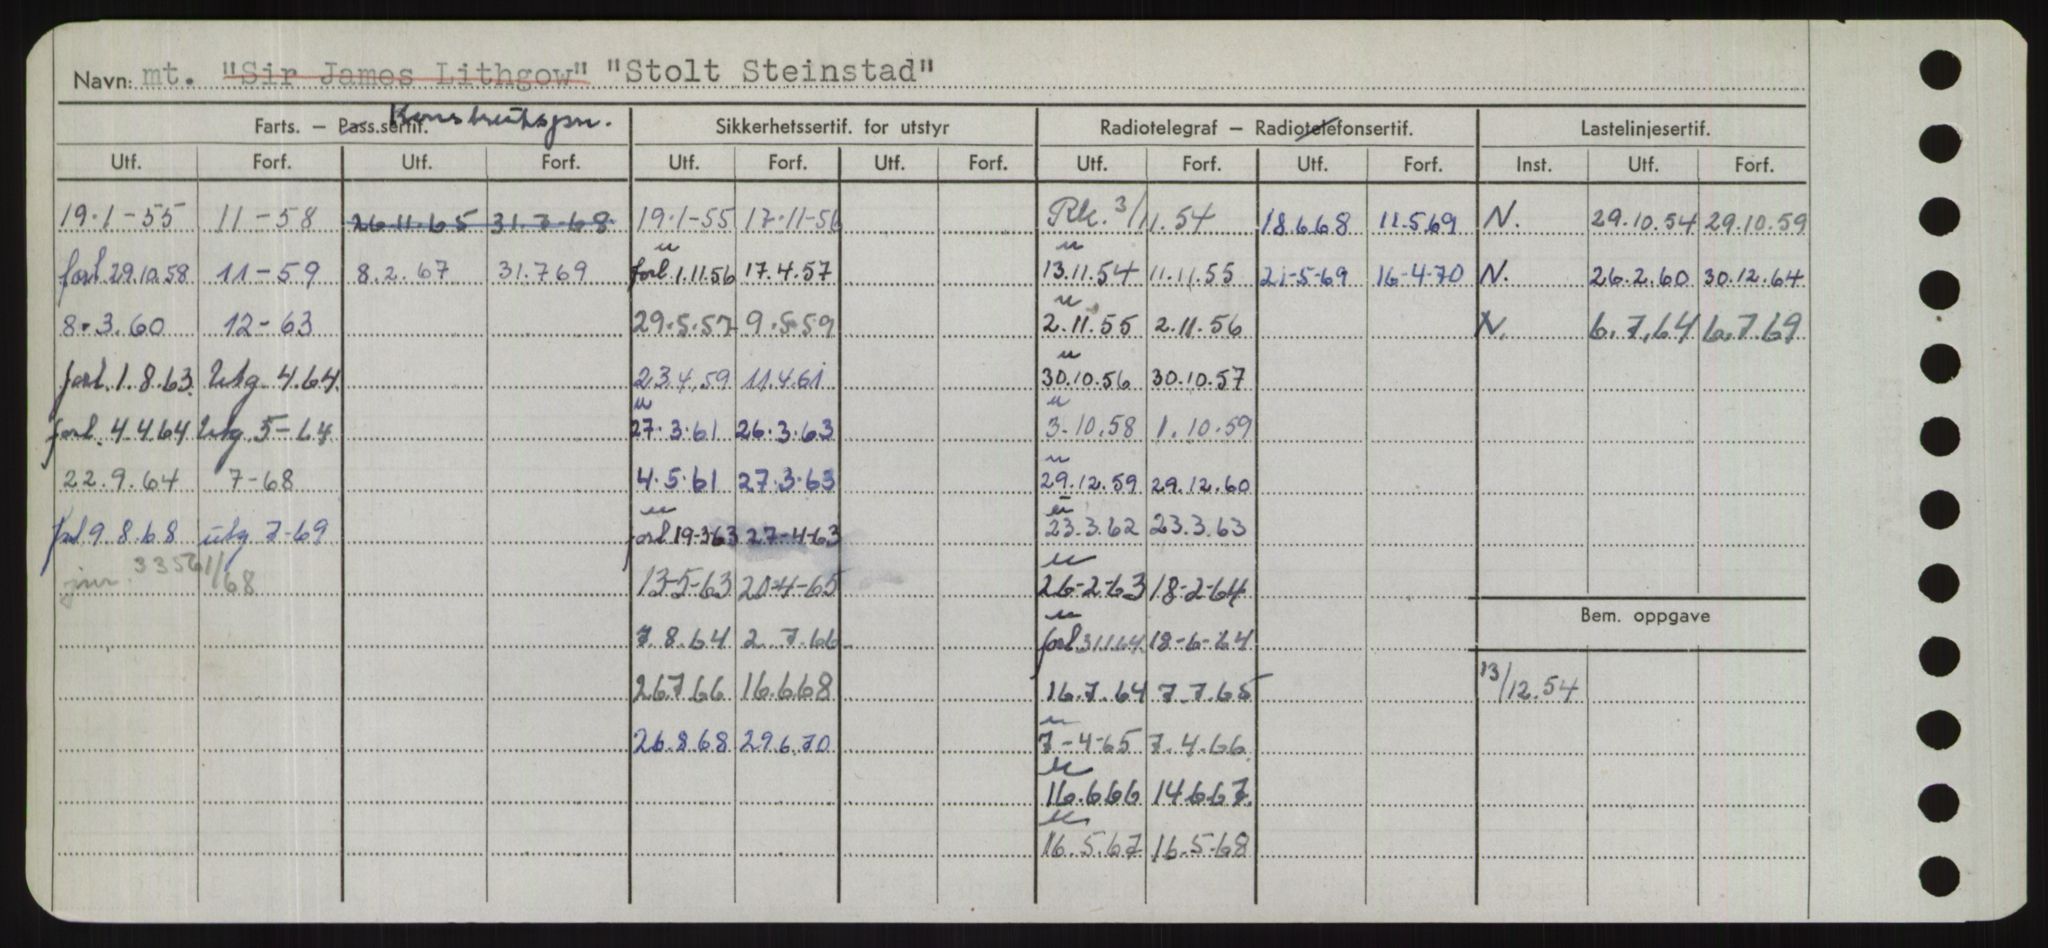 Navn: mt. "Sir James Lithgow" "Stolt Steinstad"
Farts. – Pass.sertif. Sikkerhetssertif. for utstyr Radiotelegraf – Radiotelefonsertif. Lastelinjesertif.
Utf. Forf. Utf. Forf. Utf. Forf. Utf. Forf. Utf. Forf. Utf. Forf. Inst. Utf. Forf.
19.1-55 11-58 26.11.65 31.7-68 19.1-55 17-11-56 Rk. 3/11.54 18.6.68 11.5.69 N. 29.10.54 29.10.59
u u
forl 29.10.58 11-59 8.2.67 31.7.69 forl. 1.11.56 17.4.57 13.11.54 11.11.55 21-5-69 16-4-70 N. 26.2.60 30.12.64
u
8.3.60 12-63 29.5.57 9.5.59 2.11.55 2.11.56 N. 6.7.64 6.7.69
u
forl. 1.8.63 Utg. 4.64. 23.4.59 11.4.61 30.10.56 30.10.57
u u
forl. 4.4.64 Utg. 5-64 27.3.61 26.3.63 3.10.58 1.10.59
u
22.9.64 7-68 4.5.61 27.3.63 29.12.59 29.12.60
u u
forl 9.8.68 utg 7-69 forl 19-3-63 27-4-63 23.3.62 23.3.63
u
jnr. 33561/68 13-5-63 20-4-65 26-2-63 18-2-64
u Bem. oppgave
7.8.64 2.7.66 forl 31.1.64 18-6-64
26.7.66 16.6.68 16.7.64 7.7.65 13/12.54
u
26.8.68 29.6.70 7-4-65 7.4.66
u
16.6.66 14.6.67
u
16.5.67 16.5-68